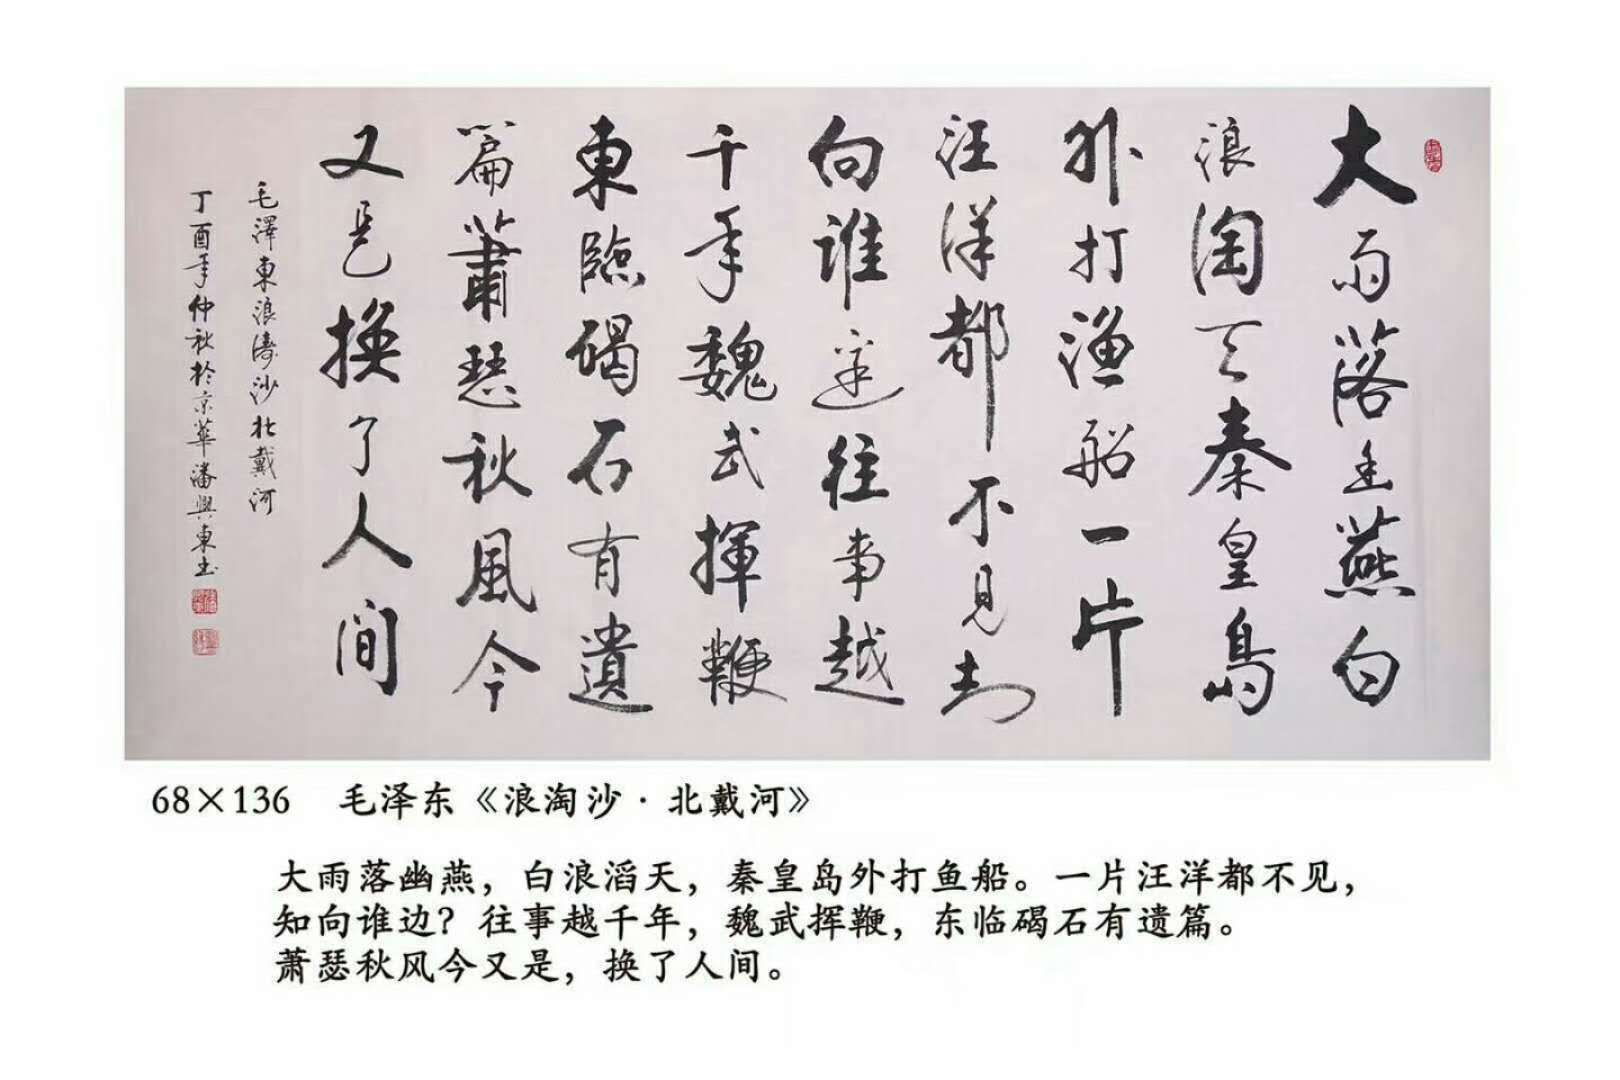 大雨落幽燕白
浪淘天秦皇島
外打渔船一片
汪洋都不見知
向谁边往事越
千年魏武揮鞭
東臨碣石有遺
篇蕭瑟秋風今
又是换了人间
毛澤東浪濤沙北戴河
丁酉年仲秋於京華潘興東书
68×136 毛泽东《浪淘沙·北戴河》
大雨落幽燕，白浪滔天，秦皇岛外打鱼船。一片汪洋都不见，
知向谁边？往事越千年，魏武挥鞭，东临碣石有遗篇。
萧瑟秋风今又是，换了人间。